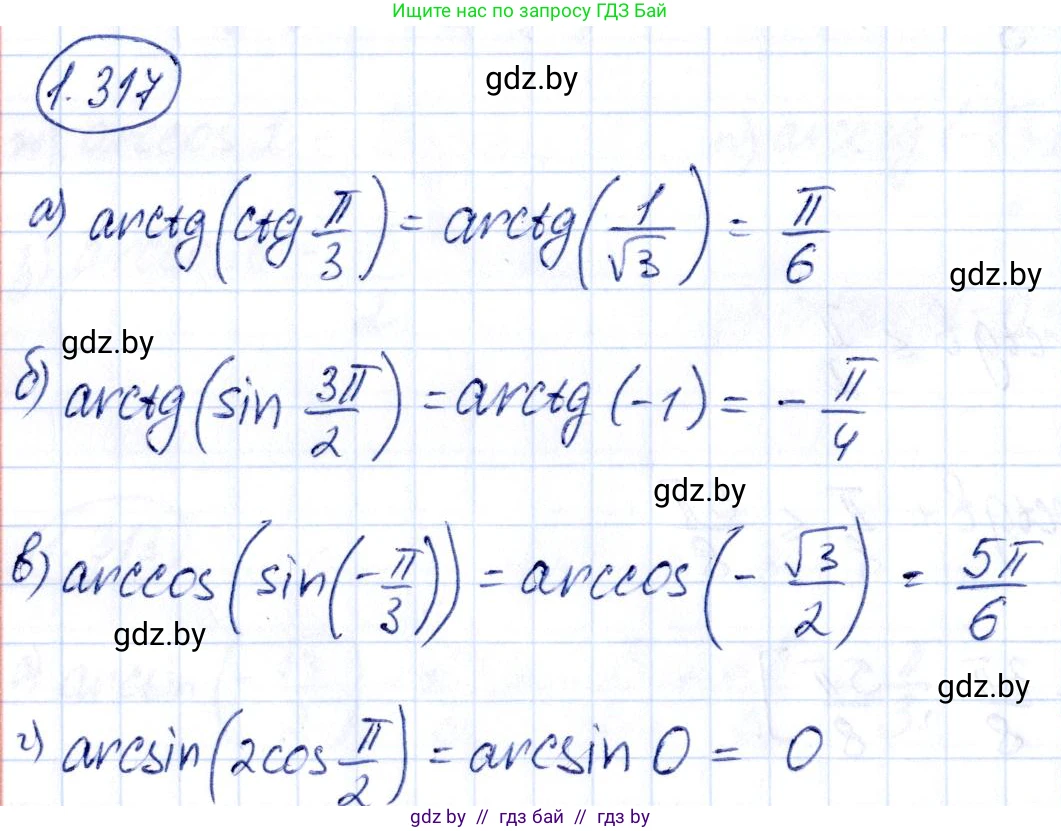 Ищите нас по запросу ГДЗ Бай
1.317
gdz.by
а) arctg(ctg π/3) = arctg(1/√3) = π/6
gdz.by
gdz.by
б) arctg(sin 3π/2) = arctg(-1) = -π/4
gdz.by
в) arccos(sin(-π/3)) = arccos(-√3/2) = 5π/6
gdz.by
gdz.by
г) arcsin(2cos π/2) = arcsin 0 = 0
gdz.by // гдз бай // гдз by